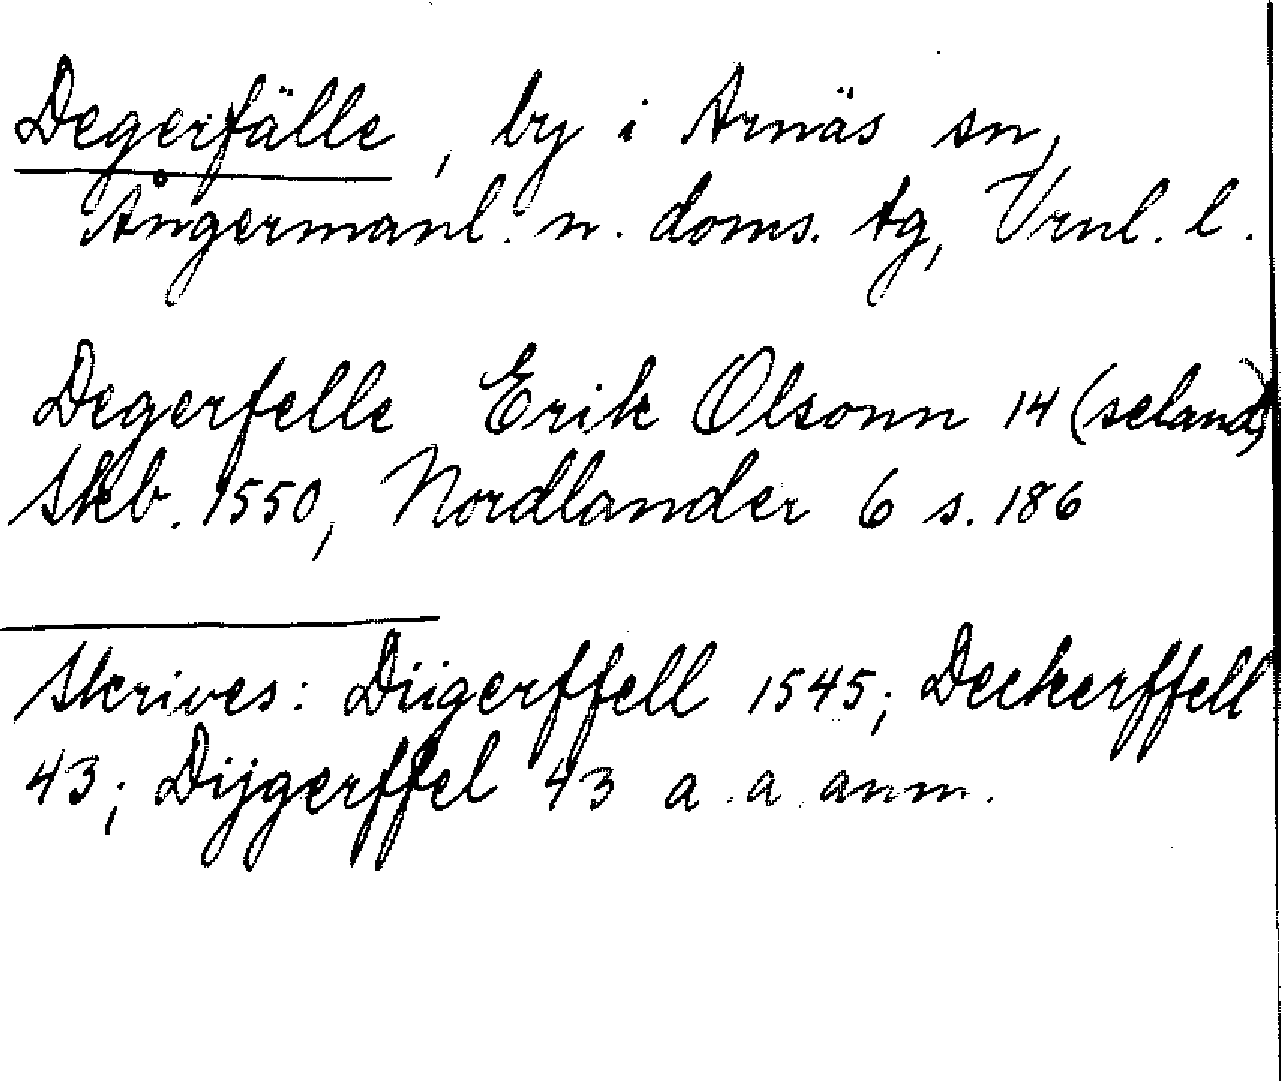 Degerfälle, by i Arnäs sn,
Ångermanl. n. doms. tg, Vrnl. l.
Degerfelle Erik Olsonn 14 (seland)
Skb. 1550, Nordlander 6 s. 186
Skrives: Diigerffell 1545; Deckerffell
43; Dijgerffel 43 a. a. anm.